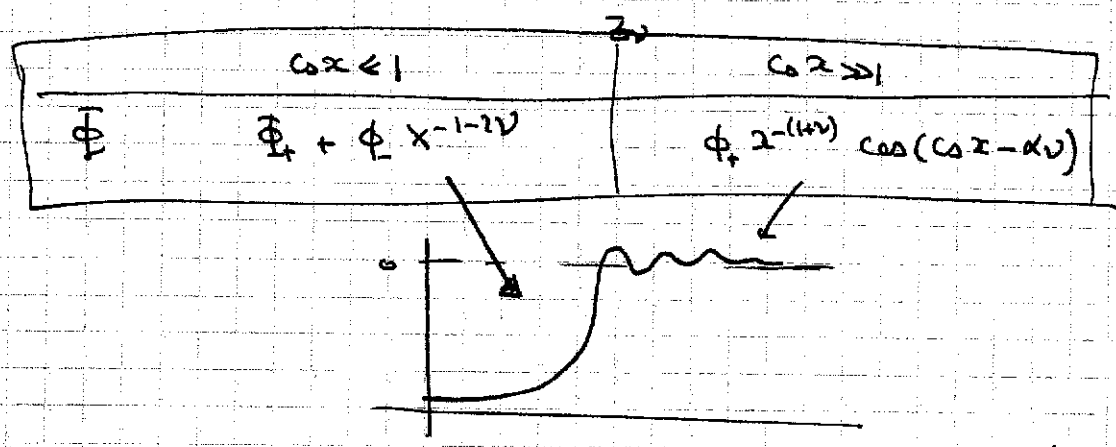 Zν
c_s x ≤ 1 c_s x ≫ 1
Φ Φ₊ + ϕ₋ x^{-1-2ν} ϕ₊ x^{-(1+ν)} cos(c_s x - αν)
0